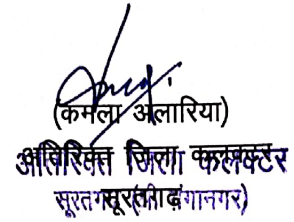 (कमला अलारिया)
अतिरिक्त जिला कलक्टर
सूरतगढ़ (श्रीगंगानगर)